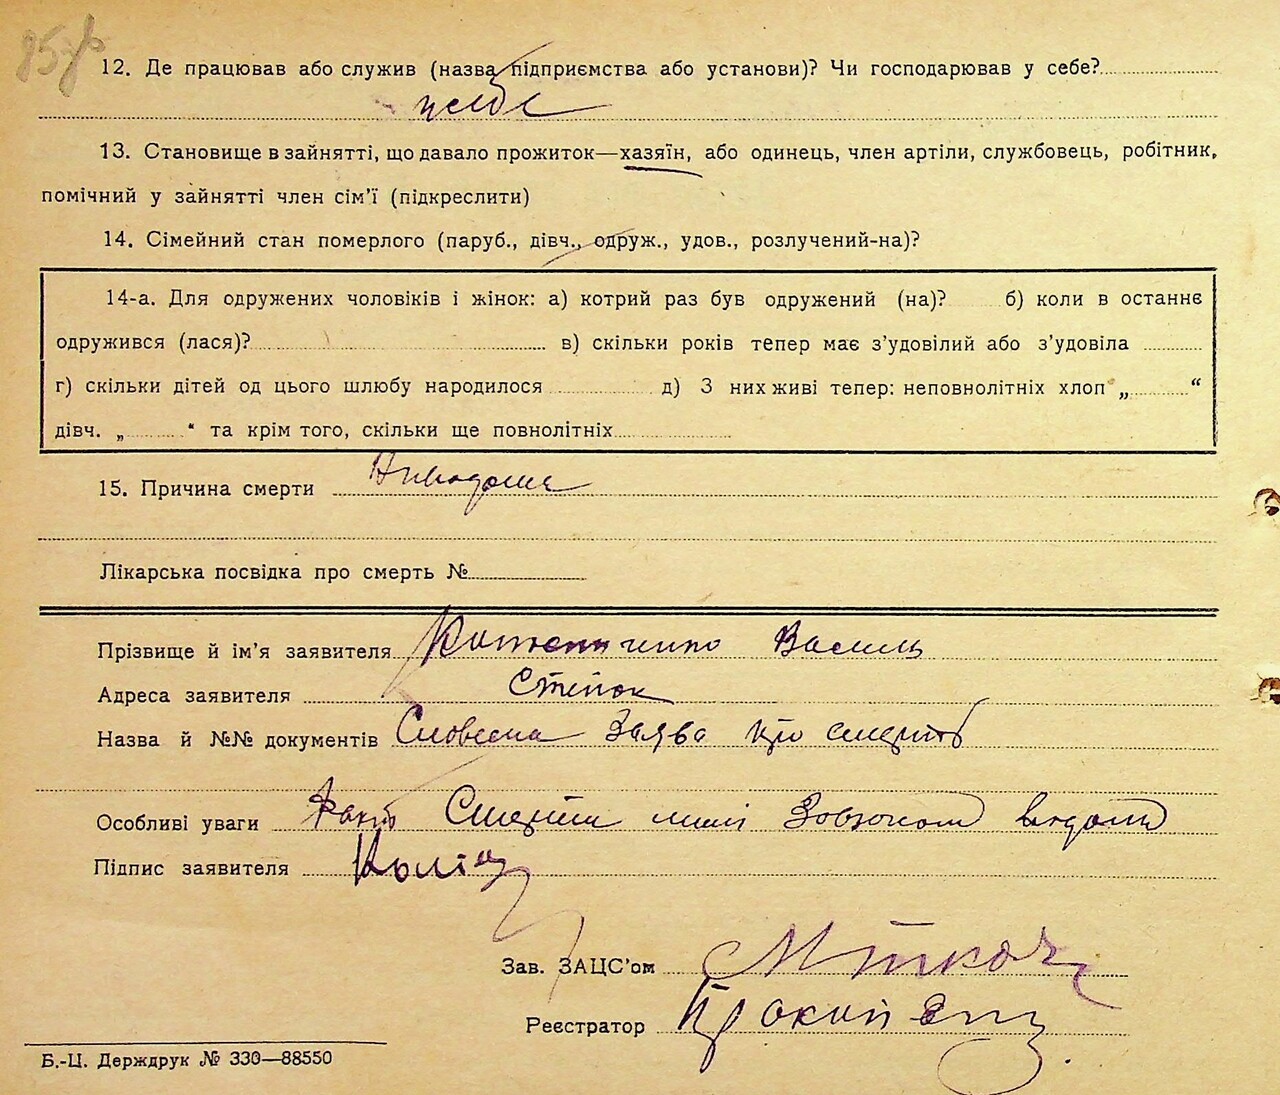 12. Де працював або служив (назва підприємства або установи)? Чи господарював у себе?
у себе
13. Становище в зайнятті, що давало прожиток—хазяїн, або одинець, член артіли, службовець, робітник,
помічний у зайнятті член сім'ї (підкреслити)
14. Сімейний стан померлого (паруб., дівч., одруж., удов., розлучений-на)?
14-а. Для одружених чоловіків і жінок: а) котрий раз був одружений (на)? б) коли в останнє
одружився (лася)? в) скільки років тепер має з'удовілий або з'удовіла
г) скільки дітей од цього шлюбу народилося д) З них живі тепер: неповнолітніх хлоп „ “
дівч. „ “ та крім того, скільки ще повнолітніх
15. Причина смерти
Лікарська посвідка про смерть №
Прізвище й ім'я заявителя Василь
Адреса заявителя Степок
Назва й №№ документів Словесна Заява про смерть
Особливі уваги Факт Смерти мині
Підпис заявителя
Зав. ЗАЦС'ом М Ткач
Реєстратор
Б.-Ц. Держдрук № 330—88550